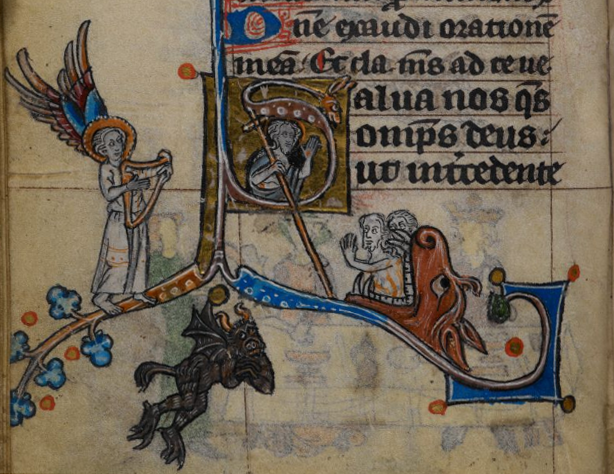 Dñe exaudi oratione
mea. Et cla. m̃s ad te ue
Salua nos q̃s
onip̃s deus:
ut int̃cedente